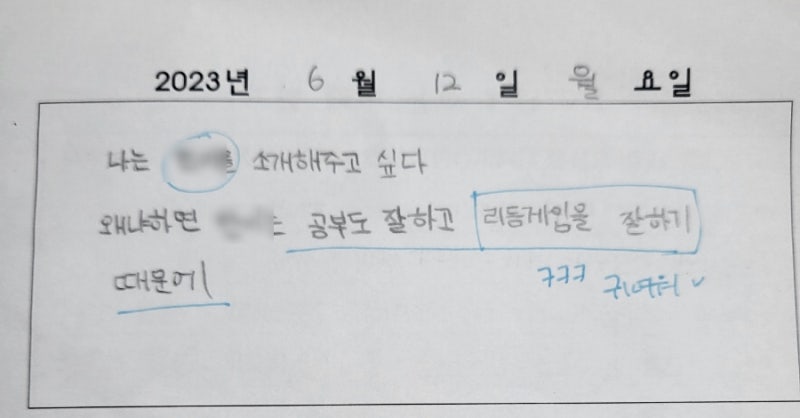 2023년 6 월 12 일 월 요일
나는 를 소개해주고 싶다
왜냐하면 는 공부도 잘하고 리듬게임을 잘하기
때문에
ㅋㅋㅋ 귀여워